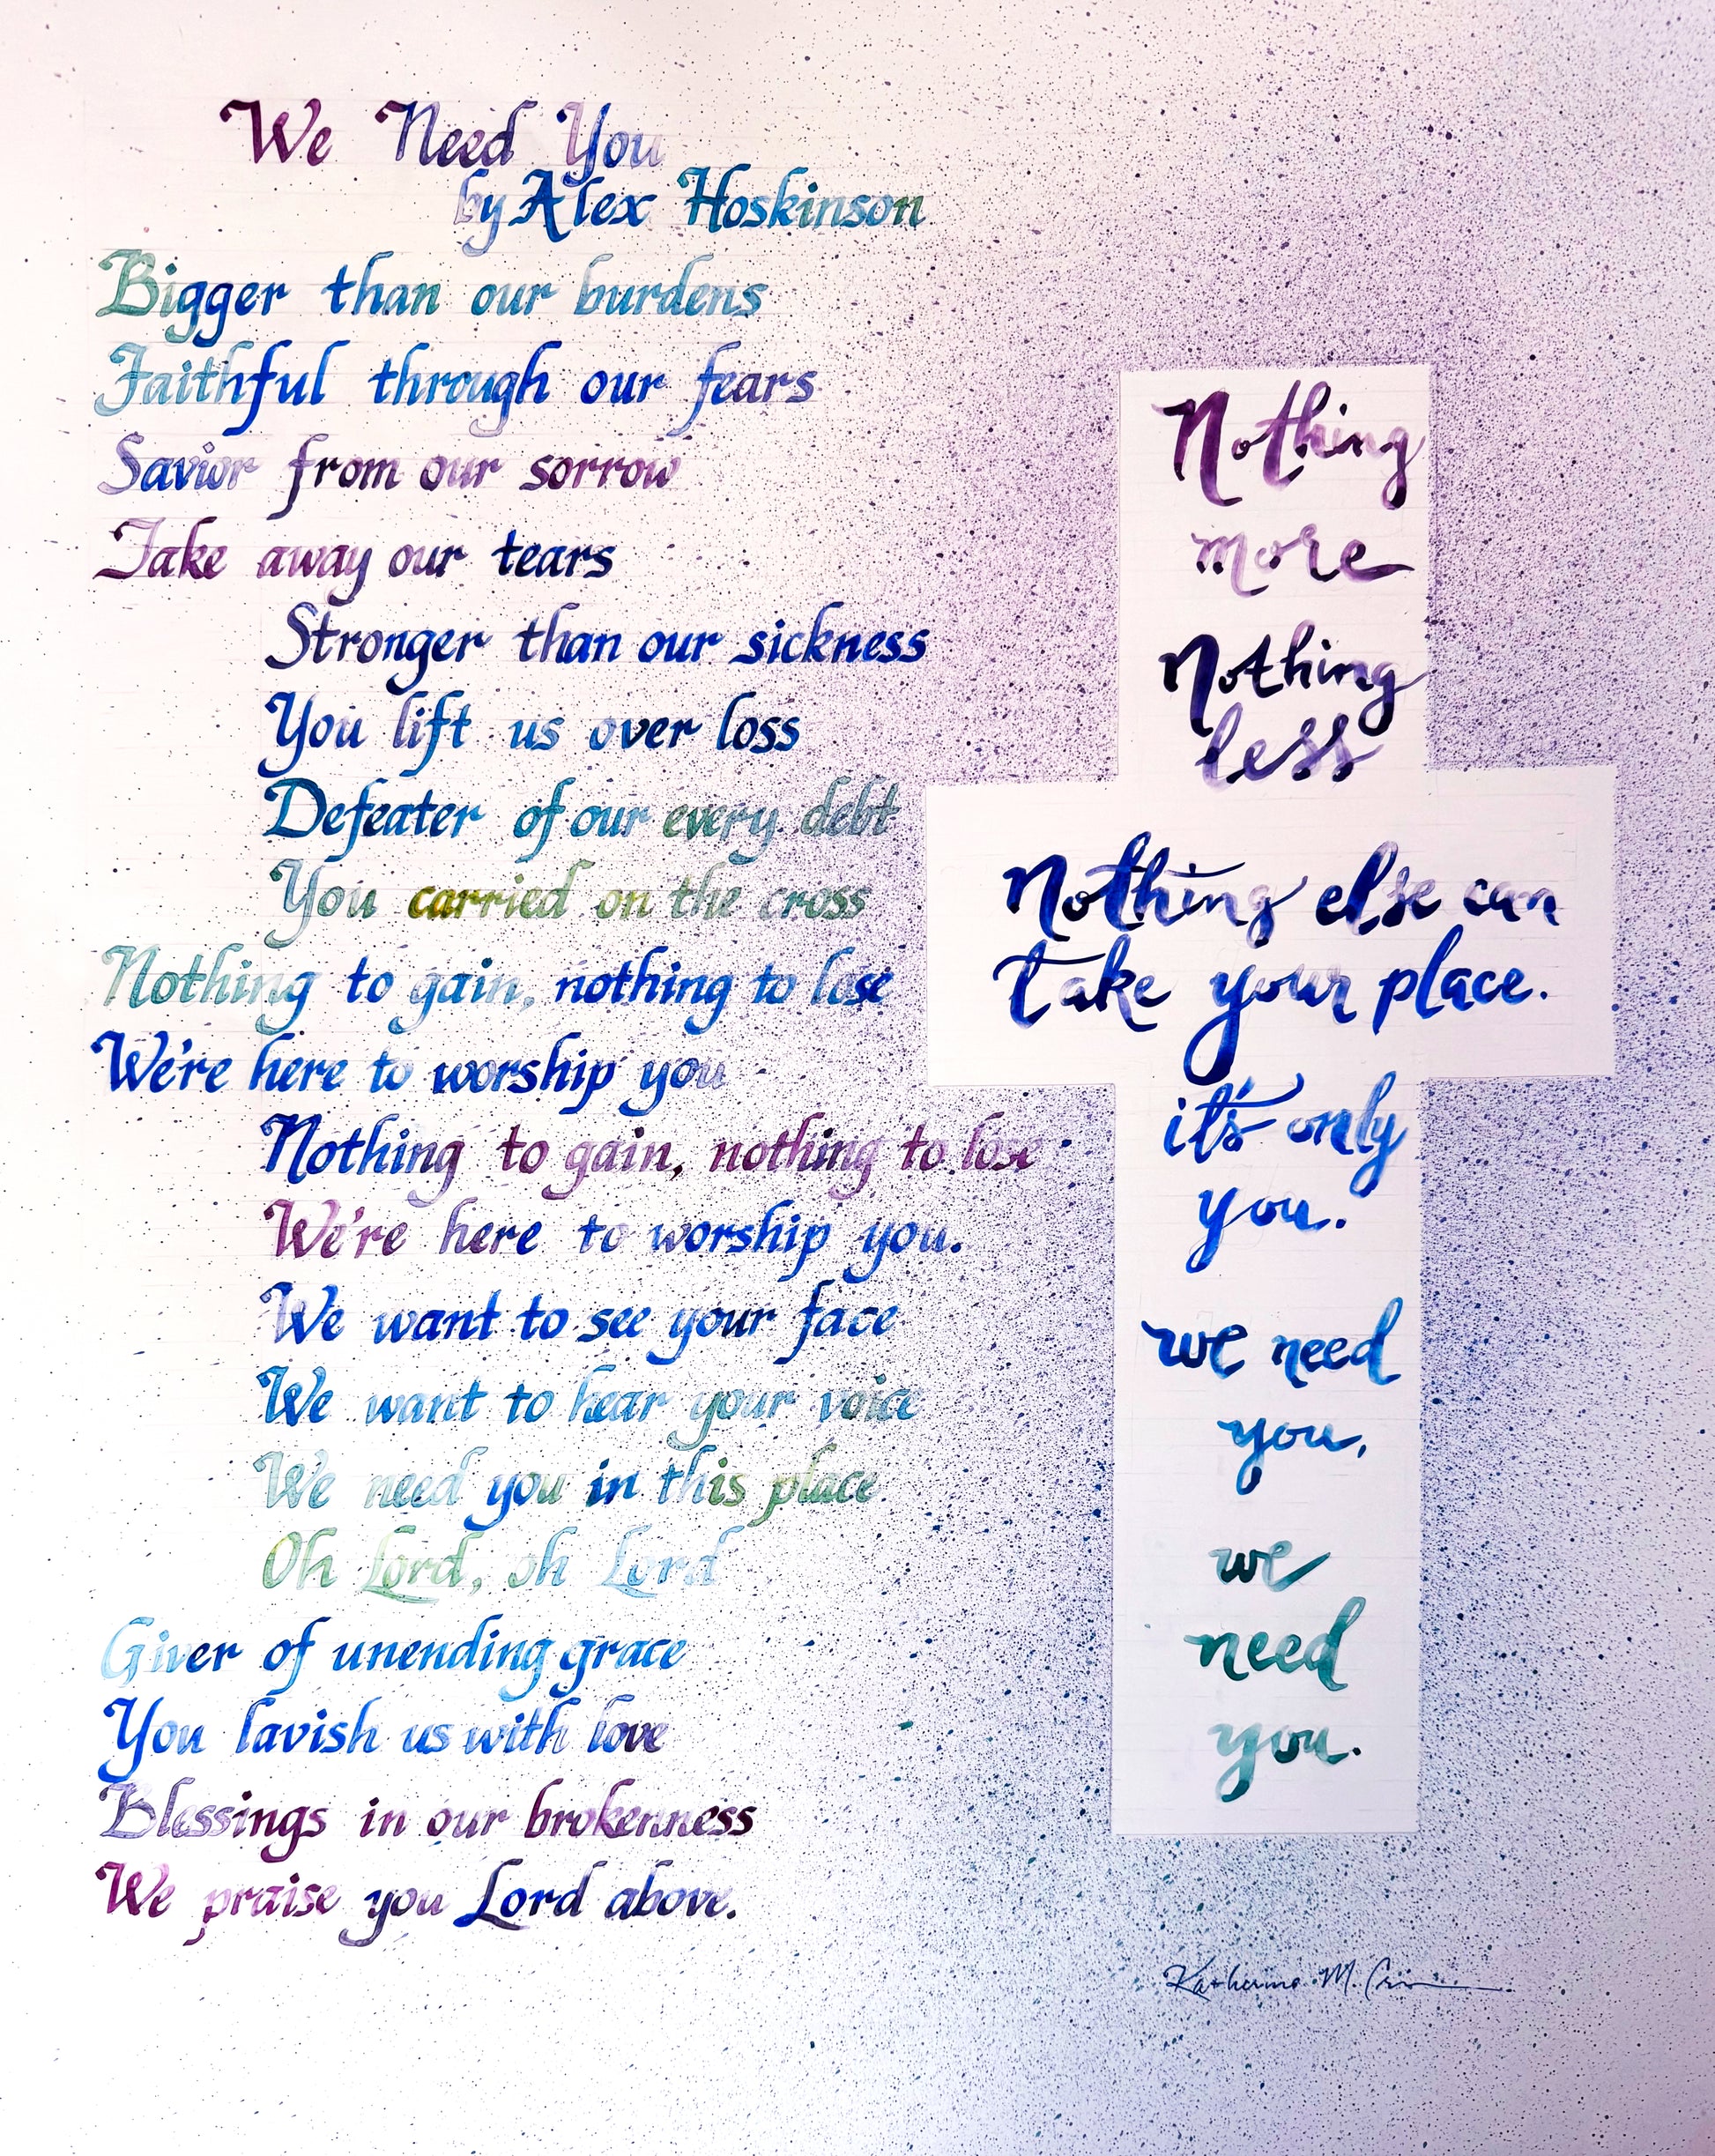 We Need You
by Alex Hoskinson
Bigger than our burdens
Faithful through our fears
Savior from our sorrow
Take away our tears
Stronger than our sickness
You lift us over loss
Defeater of our every debt
You carried on the cross
Nothing to gain, nothing to lose
We're here to worship you
Nothing to gain, nothing to lose
We're here to worship you.
We want to see your face
We want to hear your voice
We need you in this place
Oh Lord, oh Lord
Giver of unending grace
You lavish us with love
Blessings in our brokenness
We praise you Lord above.
Nothing
more
Nothing
less
Nothing else can
take your place.
it's only
you.
we need
you,
we
need
you.
Katherine M.